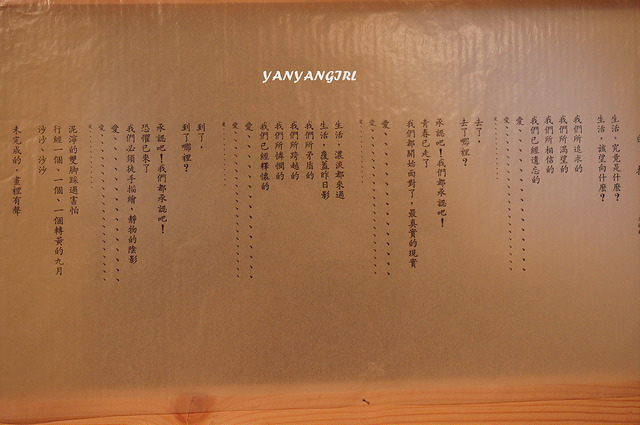 YANYANGIRL
生活，究竟是什麼？
生活，該望向什麼？
我們所追求的
我們所渴望的
我們所相信的
我們已經遺忘的
愛、、、、、、、、、、、
愛、、、、、、、、、、、
愛......
去了，
去了哪裡？
承認吧！我們都承認吧！
青春已走了
我們都開始面對了，最真實的現實
愛、、、、、、、、、、、
愛、、、、、、、、、、、
愛......
生活，濃淡都來過
生活，覆蓋昨日影
我們所矛盾的
我們所跨越的
我們所憐憫的
我們已經釋懷的
愛、、、、、、、、、、、
愛、、、、、、、、、、、
愛......
到了，
到了哪裡？
承認吧！我們都承認吧！
恐懼已來了
我們必須徒手描繪，靜物的陰影
愛、、、、、、、、、、、
愛、、、、、、、、、、、
愛......
泥濘的雙腳踩過害怕
行經一個、一個、一個轉黃的九月
沙沙，沙沙
未完成的，畫裡有聲